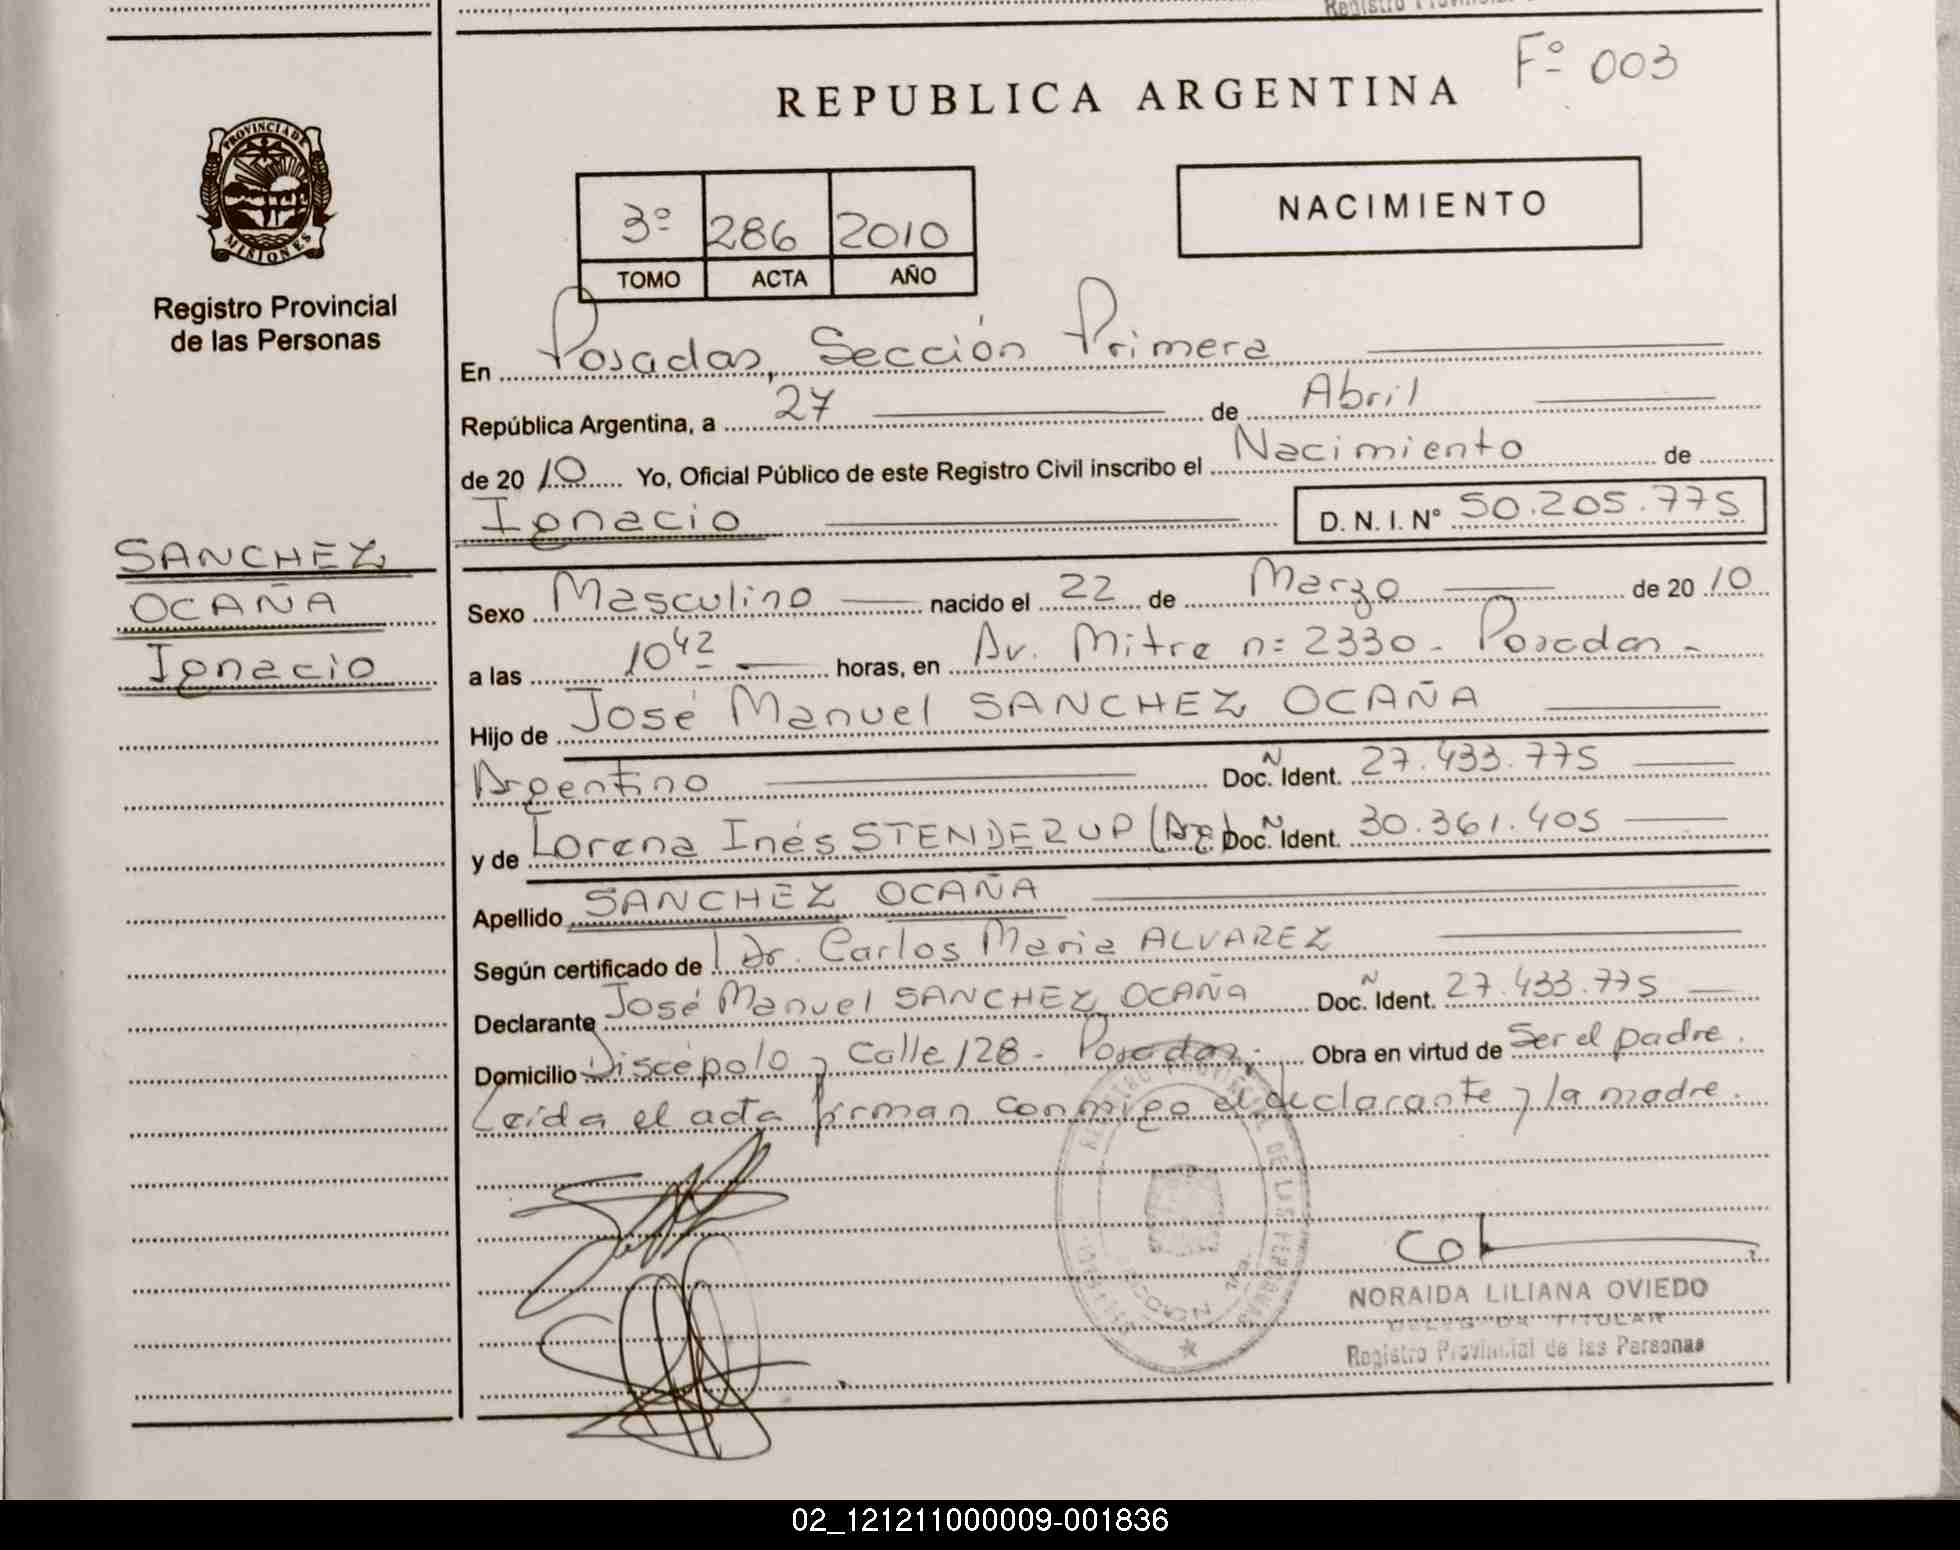 Registro Provincial
Fº 003
REPUBLICA ARGENTINA
PROVINCIA DE
MISIONES
3º 286 2010
TOMO ACTA AÑO
NACIMIENTO
Registro Provincial
de las Personas
En Posadas, Sección Primera
República Argentina, a 27 de Abril
de 2010 Yo, Oficial Público de este Registro Civil inscribo el Nacimiento de
Ignacio D. N. I. Nº 50.205.775
SANCHEZ
OCAÑA
Ignacio
Sexo Masculino nacido el 22 de Marzo de 2010
a las 10 42 horas, en Av. Mitre n= 2330 - Posadas -
Hijo de José Manuel SANCHEZ OCAÑA
Argentino Doc. Ident. 27.433.775
y de Lorena Inés STENDERUP (Arg) Doc. Ident. 30.361.405
Apellido SANCHEZ OCAÑA
Según certificado de Dr. Carlos Maria ALVAREZ
Declarante José Manuel SANCHEZ OCAÑA Doc. Ident. 27.433.775
Domicilio Discépolo y Calle 128 - Posadas - Obra en virtud de Ser el padre.
Leída el acta firman conmigo el declarante y la madre.
NORAIDA LILIANA OVIEDO
TITULAR
Registro Provincial de las Personas
02_121211000009-001836